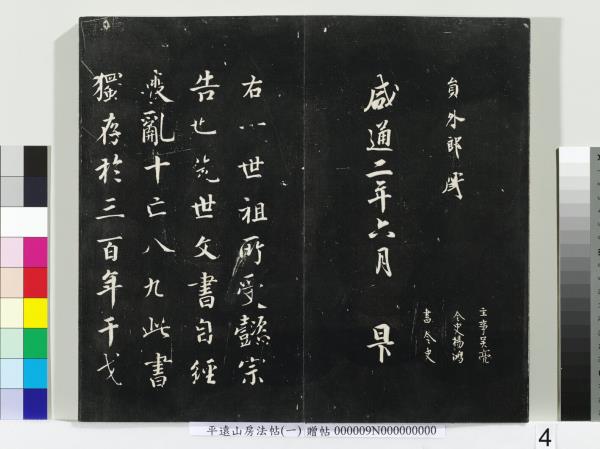 員外郎
主事吳亮
令史楊鴻
書令史
咸通二年六月 日
右八世祖所受懿宗
告也先世文書自經
喪亂十亡八九此書
獨存於三百年干戈
平遠山房法帖(一) 贈帖 000009N000000000
4